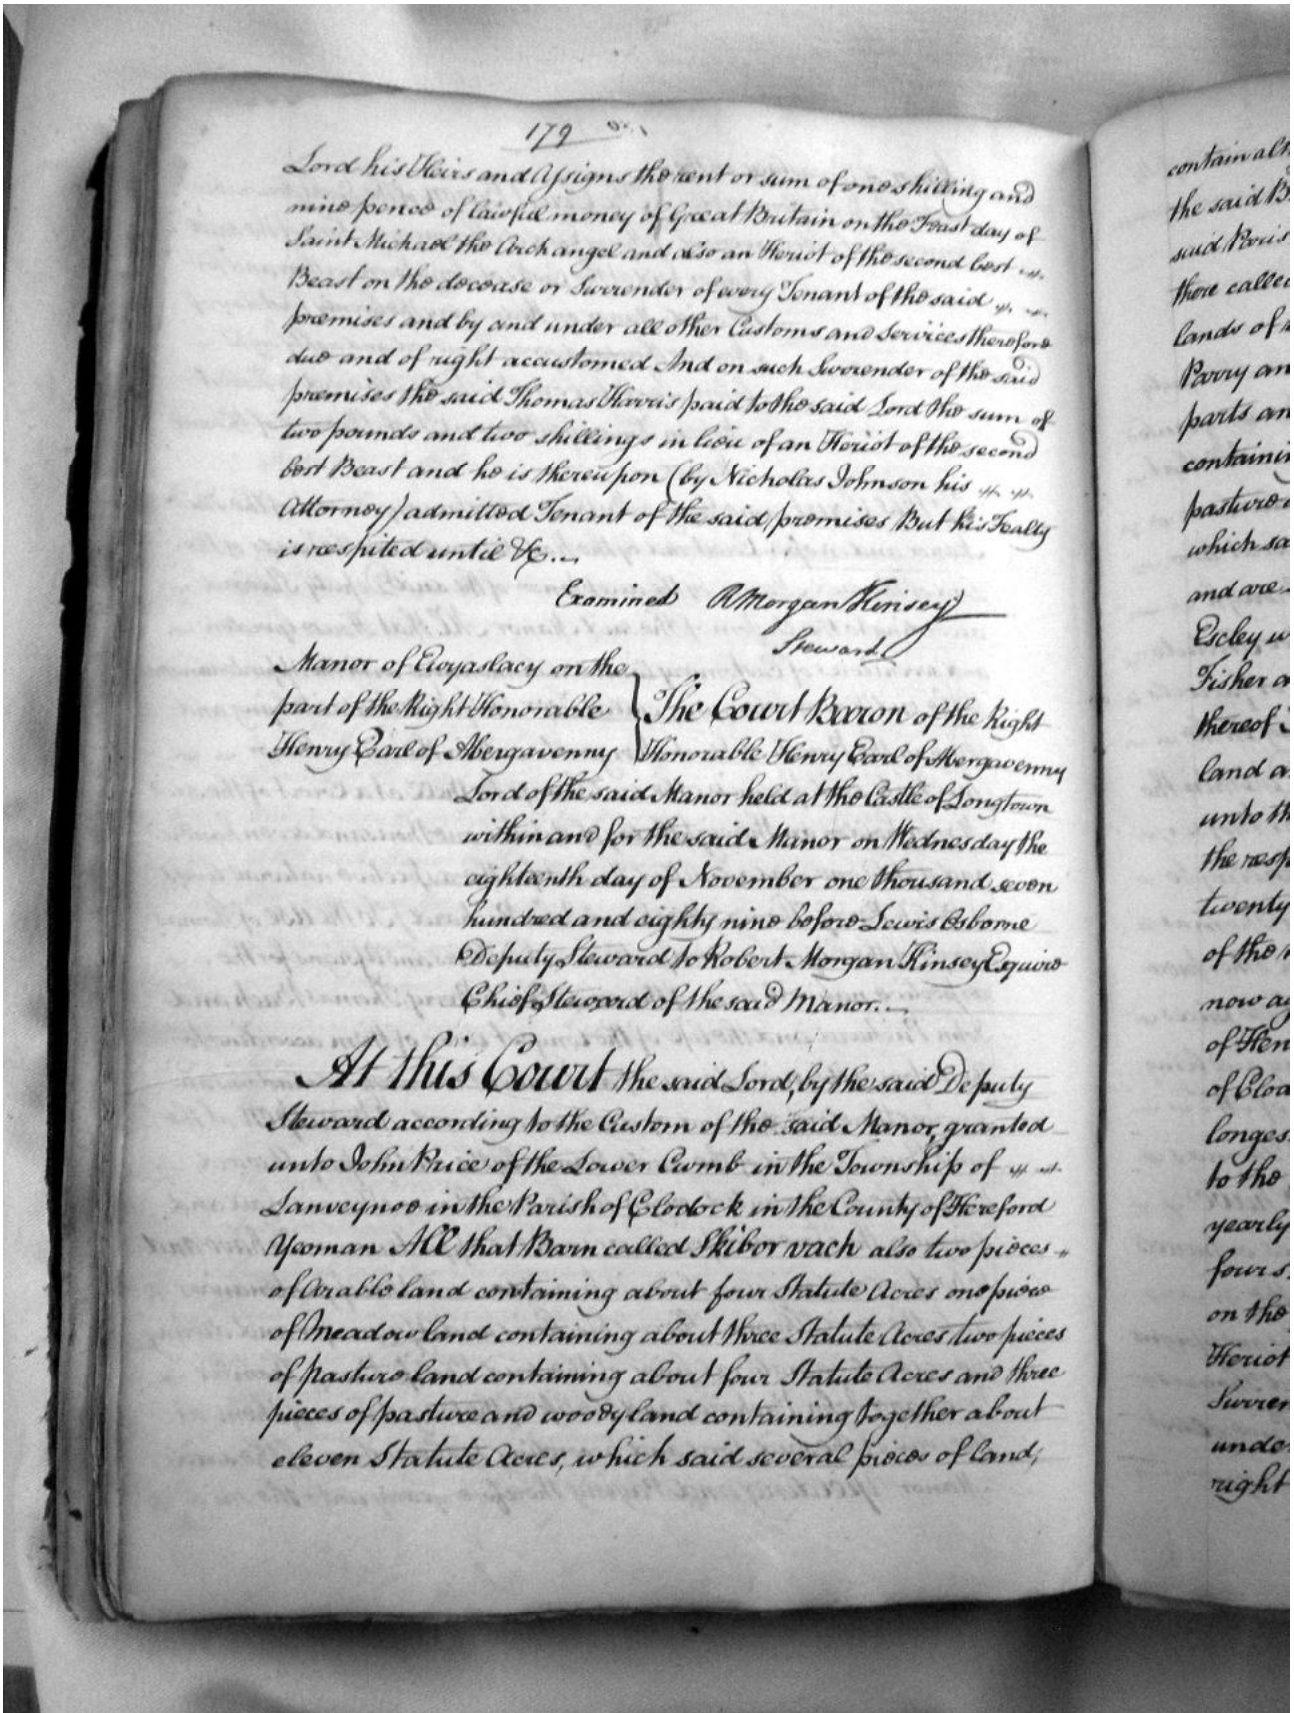 179
Lord his Heirs and Assigns the rent or sum of one shilling and
nine pence of lawful money of Great Britain on the Feast day of
Saint Michael the Archangel and also an Heriot of the second best
Beast on the decease or Surrender of every Tenant of the said
premises and by and under all other Customs and Services therefore
due and of right accustomed And on such Surrender of the said
premises the said Thomas Harris paid to the said Lord the sum of
two pounds and two shillings in lieu of an Heriot of the second
best Beast and he is thereupon (by Nicholas Johnson his
Attorney) admitted Tenant of the said premises But his Fealty
is respited until &c.
Examined RMorgan Kinsey
Steward
Manor of Ewyaslacy on the
part of the Right Honorable
Henry Earl of Abergavenny
The Court Baron of the Right
Honorable Henry Earl of Abergavenny
Lord of the said Manor held at the Castle of Longtown
within and for the said Manor on Wednesday the
eighteenth day of November one thousand seven
hundred and eighty nine before Lewis Osborne
Deputy Steward to Robert Morgan Kinsey Esquire
Chief Steward of the said Manor.
At this Court the said Lord, by the said Deputy
Steward according to the Custom of the said Manor, granted
unto John Price of the Lower Cwmb in the Township of
Lanveynoe in the Parish of Clodock in the County of Hereford
Yeoman All that Barn called Skibor vach also two pieces
of Arable land containing about four Statute Acres one piece
of Meadow land containing about three Statute Acres two pieces
of pasture land containing about four Statute Acres and three
pieces of pasture and woody land containing together about
eleven Statute Acres, which said several pieces of land,
contain
the said
said
there called
lands of
Parry an
parts an
pasture
which sa
and are
Escley w
Fisher
thereof
land a
unto th
the resp
twenty
of the
now ag
of Hen
of Clo
longes
to the
yearly
four s
on the
Heriot
Surren
unde
right